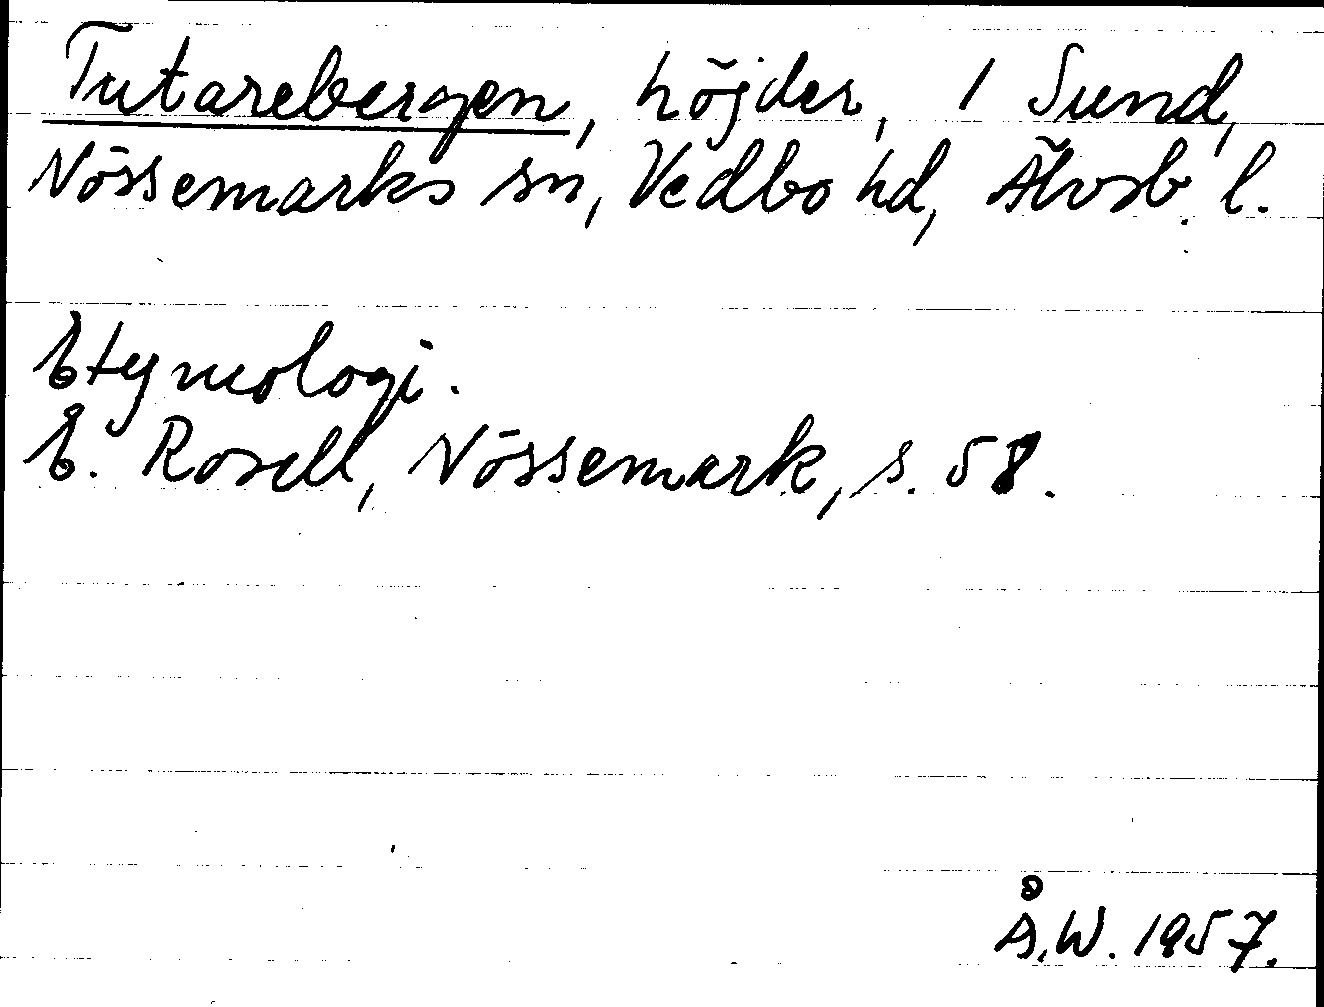 Tutarebergen, höjder, 1 Sund,
Nössemarks sn, Vedbo hd, Älvsb. l.
Etymologi.
E. Rosell, Nössemark, s. 58.
Å.W. 1957.